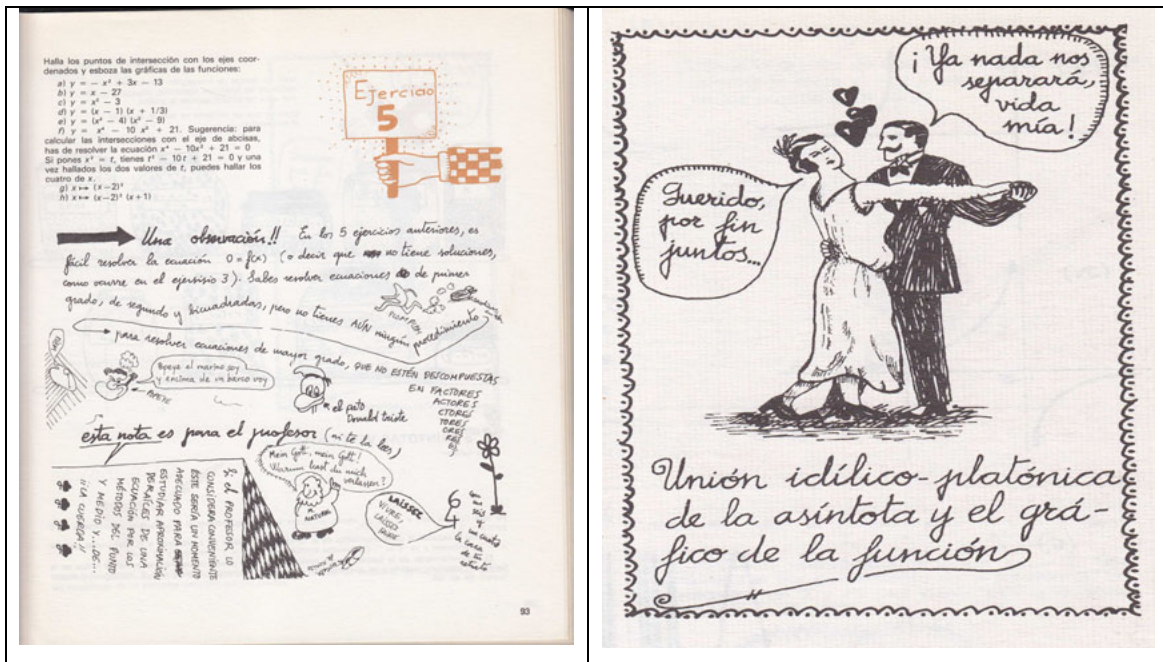 Halla los puntos de intersección con los ejes coor-
denados y esboza las gráficas de las funciones:
a) y = − x² + 3x − 13
b) y = x − 27
c) y = x² − 3
d) y = (x − 1) (x + 1/3)
e) y = (x² − 4) (x² − 9)
f) y = x⁴ − 10 x² + 21. Sugerencia: para
calcular las intersecciones con el eje de abcisas,
has de resolver la ecuación x⁴ − 10x² + 21 = 0
Si pones x² = t, tienes t² − 10t + 21 = 0 y una
vez hallados los dos valores de t, puedes hallar los
cuatro de x.
g) x ↦ (x−2)³
h) x ↦ (x−2)² (x+1)
Ejercicio
5
Una observación!! En los 5 ejercicios anteriores, es
fácil resolver la ecuación 0 = f(x) (o decir que no tiene soluciones,
como ocurre en el ejercicio 3). Sabes resolver ecuaciones de primer
grado, de segundo y bicuadradas, pero no tienes AÚN ningún procedimiento
para resolver ecuaciones de mayor grado, QUE NO ESTÉN DESCOMPUESTAS
EN FACTORES
ACTORES
CTORES
TORES
ORES
RES
ES
Popeye el marino soy
y encima de un barco voy
el pato
Donald triste
esta nota es para el profesor (ni te la leas)
Mein Gott, mein Gott!
Warum hast du mich
verlassen?
M.
NATURAL
LAISSEZ
VIVRE,
LAISSEZ
Si el PROFESOR LO
CONSIDERA CONVENIENTE
ÉSTE SERÍA UN MOMENTO
ADECUADO PARA
ESTUDIAR APROXIMACIÓN
DE RAÍCES DE UNA
ECUACIÓN POR LOS
MÉTODOS DEL PUNTO
Y MEDIO Y...DE...
¡¡LA CUERDA!!
6
4
Con
seis y
un cuatro
la cara
de tu
retrato
93
¡Ya nada nos
separará,
vida
mía!
Querido,
por fin
juntos...
Unión idílico-platónica
de la asíntota y el grá-
fico de la función